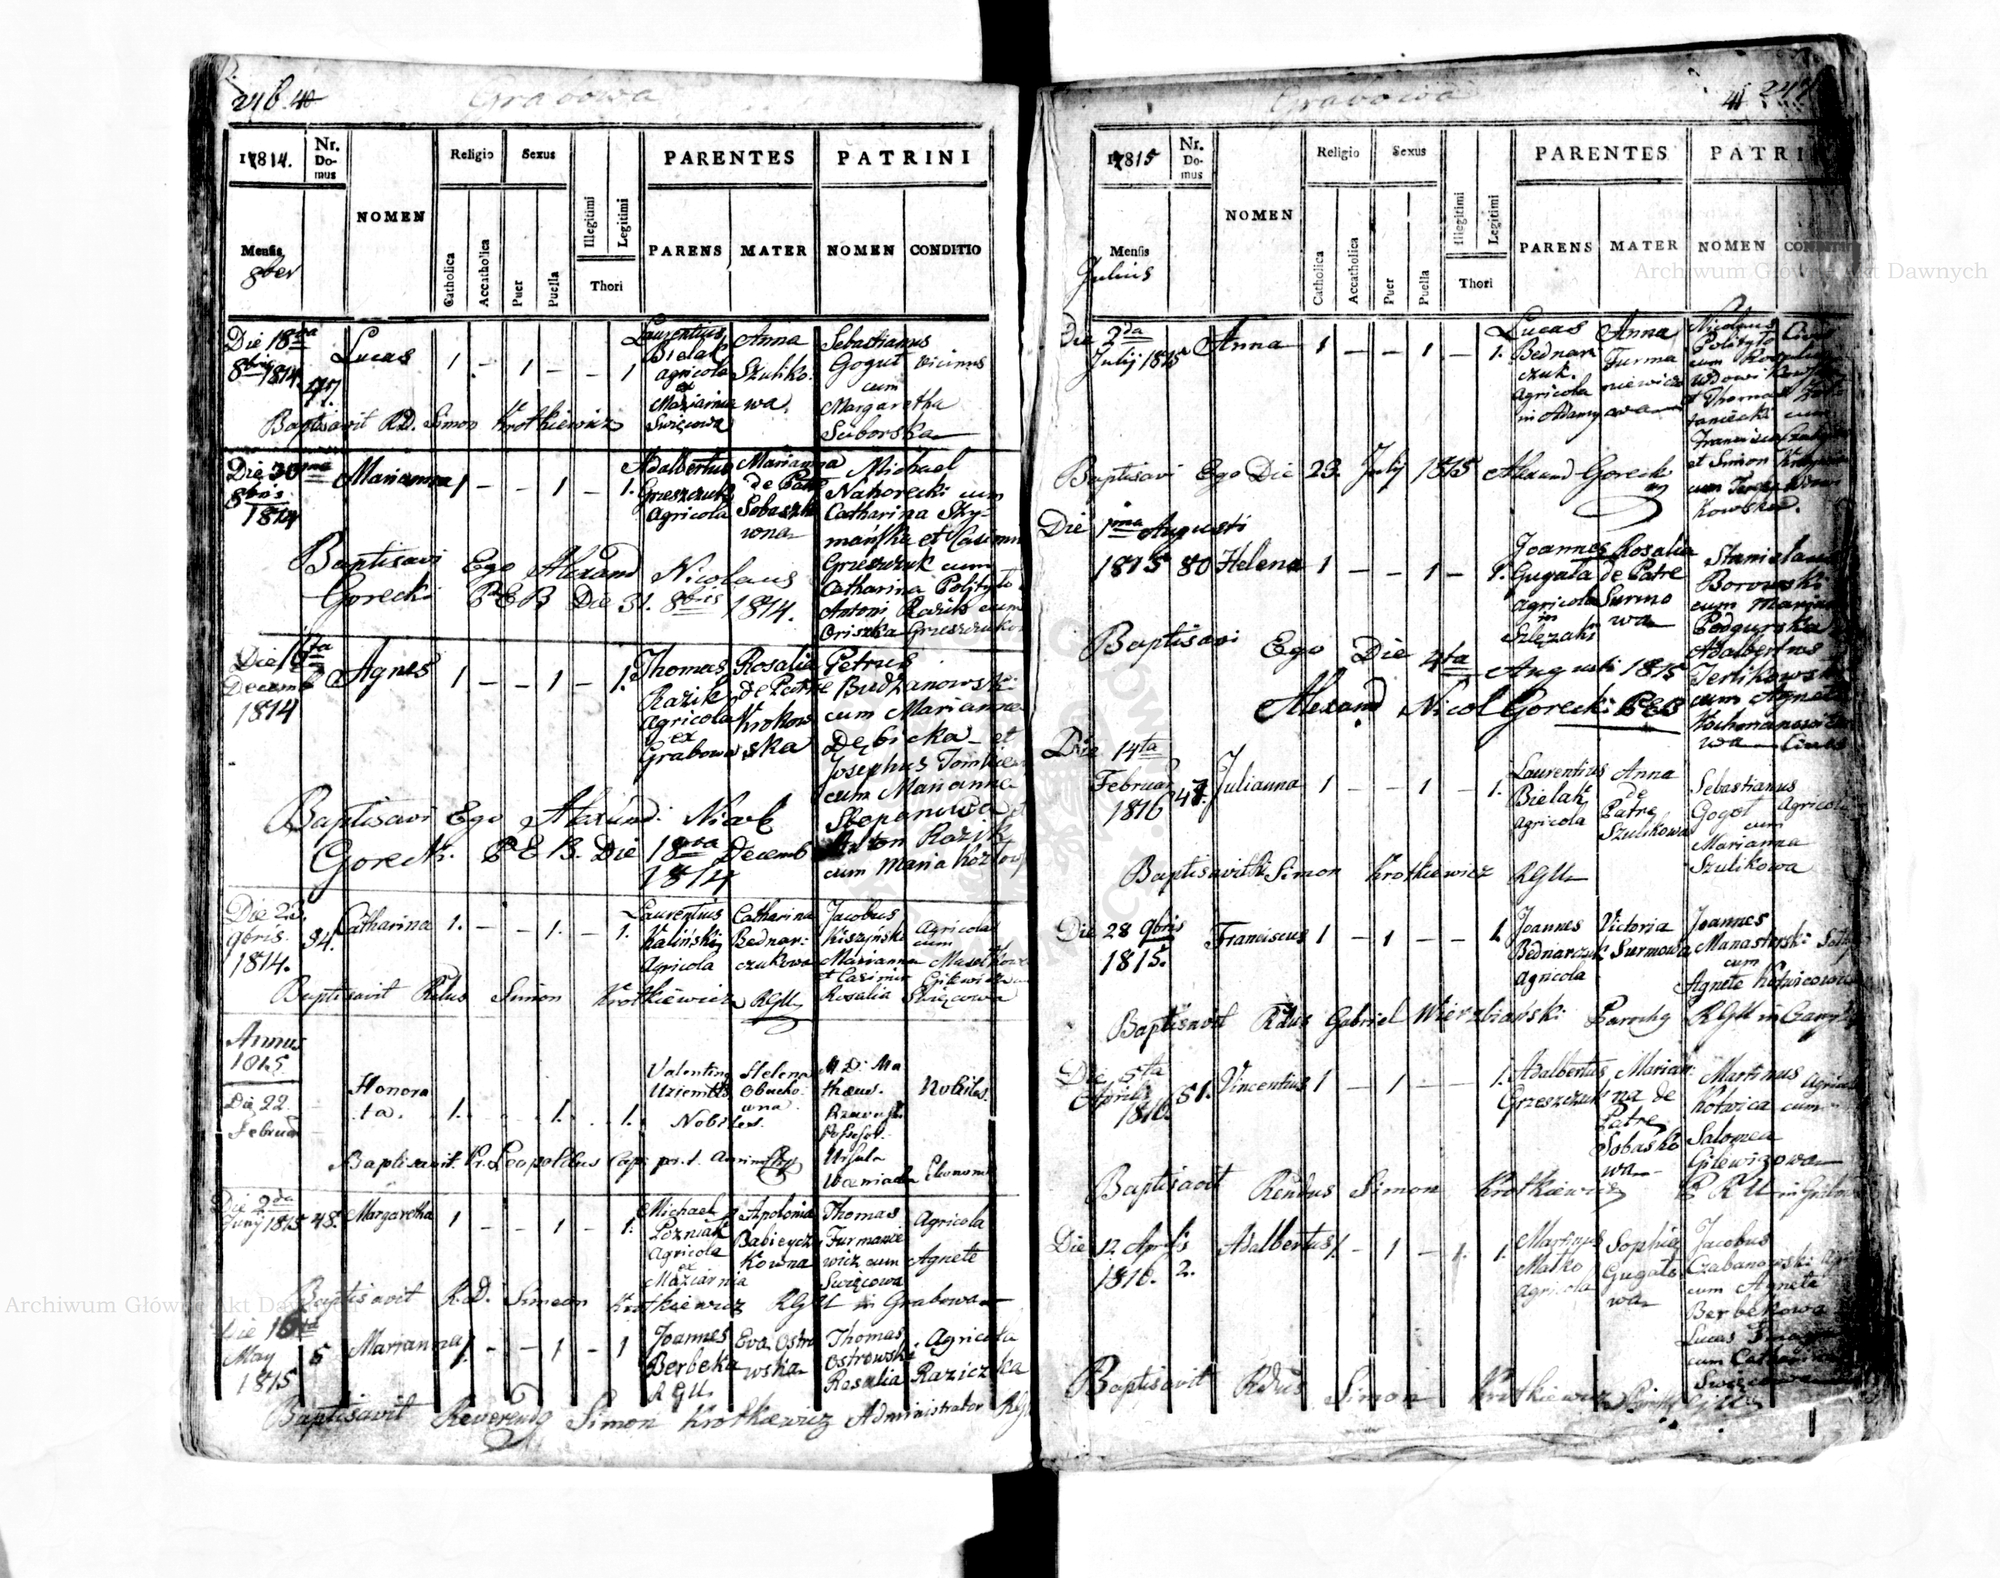 246. 40
Grabowa
1814.
Nr. Domus
NOMEN
Religio
Sexus
PARENTES
PATRINI
Mensis
8ber
Catholica
Accatholica
Puer
Puella
Illegitimi
Legitimi
Thori
PARENS
MATER
NOMEN
CONDITIO
Die 18va
8bris 1814.
47.
Lucas
1 – 1 – – 1
Laurentius
Bielak
agricola
ex
Maziarnia
Swięcowa
Anna
Szuliko:
wa.
Sebastianus
Gogut vicinus
cum
Margaretha
Saborska
Baptisavit Rd. Simon Krotkiewicz
Die 30ma
8bris
1814
Marianna
1 – – 1 – 1.
Adalbertus
Greszczuk
Agricola
Marianna
de Patre
Sobaszko
wna
Michael
Nahorecki cum
Catharina Szy-
mańska et Casimir
Greszczuk cum
Catharina Polityło
Antoni Razik cum
Oriszka Greszczukowa
Baptisavi Ego Alexand Nicolaus
Gorecki PEB Die 31. 8bris 1814.
Die 16ta
Decemb
1814
Agnes
1 – – 1 – 1.
Thomas
Razik
Agricola
ex
Grabowa
Rosalia
de Patre
Krokow
ska
Petrus
Budzanowski
cum Marianna
Dębicka et
Josephus Tomkiew
cum Marianna
Stepanowa
Anton Razyk
cum Maria Kozłow
Baptisavi Ego Alexand: Nicol
Gorecki. PEB. Die 18va Decemb
1814
Die 23.
9bris.
1814.
34.
Catharina
1. – – 1. – 1.
Laurentius
Kaliński
Agricola
Catharina
Bednar:
czukowa
Jacobus
Kiszyński Agricola
cum
Marianna
et Casimir
Rosalia Swięcowa
Baptisavit Rdus Simon Krotkiewicz RGU
Annus
1815
Die 22.
Februar
Honora
ta.
1. 1. 1.
Valentinus
Nobiles.
Helena
Obucho
wna
M: D: Ma
thæus.
Nobiles
Ursula
Ekonom
Baptisavit. Pr. Leopoldus Cap:
Die 2da
Junij 1815 48.
Margaretha
1 – – 1 – 1.
Michael
Pozniak
Agricola
ex
Maziarnia
Apolonia
Babieycz
Kowna
Thomas
Furmanie
wicz cum
Swięcowa
Agricola
Agnete
Baptisavit R.d. Simeon Krotkiewicz RGU in Grabowa
Die 16ta
May
1815
5
Marianna
1. – – 1 – 1
Joannes
Berbeka
RGU
Eva Ostro
wska
Thomas
Ostrowski
Rosalia
Agricola
Raziczka
Baptisavit Reverendg Simon Krotkiewicz Administrator
41 247
Grabowa
1815
Nr. Domus
NOMEN
Religio
Sexus
PARENTES
PATRINI
Mensis
Julius
Catholica
Accatholica
Puer
Puella
Illegitimi
Legitimi
Thori
PARENS
MATER
NOMEN
CONDITIO
Die 2da
Julij 1815
Anna
1 – – 1 – 1.
Lucas
Bednar
czuk.
Agricola
in Adamy
Anna
Furma
niewiczo
wa
Nicolaus
Polityło
et Thomas
cum
et Simon
kowska.
Baptisavi Ego Die 23. July 1815 Alexand Gorecki
Die 1ma Augusti
1815 80 Helena
1 – – 1 – 1.
Joannes
Gugała
Agricola
in
Szlęzaki
Rosalia
de Patre
Surmo
wa
Stanislaus
Borowski
cum Mariana
Podgurska
Adalbertus
Terlikowski
cum Agnete
Baptisavi Ego Die 4ta Augusti 1815
Alexand Nicol Gorecki PEB
Die 14ta
Februar
1816
47.
Julianna
1 – – 1 – 1.
Laurentius
Bielak
Agricola
Anna
de
Patre
Szulikowa
Sebastianus
Gogot Agricola
cum
Marianna
Szulikowa
Simon Krotkiewicz RGU
Die 28 9bris
1815.
Franciscus
1 – 1 – – 1.
Joannes
Bednarczuk
Agricola
Victoria
Surmowa
Joannes
Manasterski
cum
Agnete Kotwicowa
Baptisavit Rdus Gabriel Wierzbiański Parochg RGU in
Die 5ta
Aprilis
1816.
81.
Vincentius
1 – 1 – – 1.
Adalbertus
Greszczuk
Marian:
na de
Patre
Sobaśko
wa
Martinus Agricola
Kotwica cum
Salomea
Gilewizowa
Baptisavit Rendus Simon Krotkiewicz
Die 12 Aprilis
1816. 2.
Adalbertus
1. – 1 – 1. 1.
Martinus
Matko
Agricola
Sophia
Gugało
wa
Jacobus
Czabanowski
cum Agnete
Berbekowa
Lucas
cum Catharina
Swięcowa
Baptisavit Rdus Simon Krotkiewicz
Archiwum Główne Akt Dawnych
Archiwum Główne Akt Dawnych